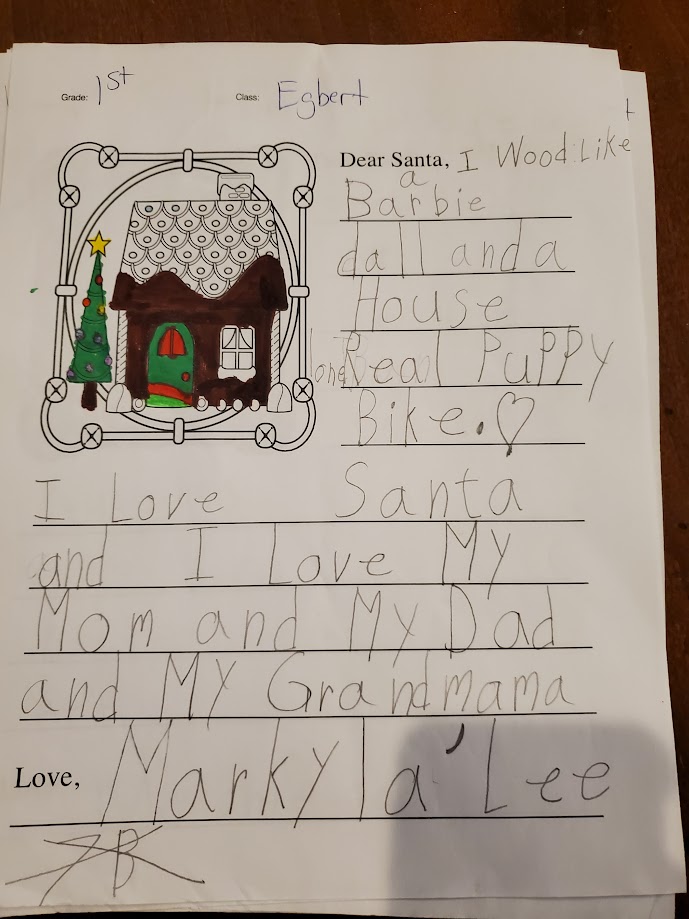 Grade: 1st Class: Egbert
Dear Santa, I Wood Like
a
Barbie
dall and a
House
one Real Puppy
Bike.
I Love Santa
and I Love My
Mom and My Dad
and My Grandmama
Love, Markyla' Lee
B